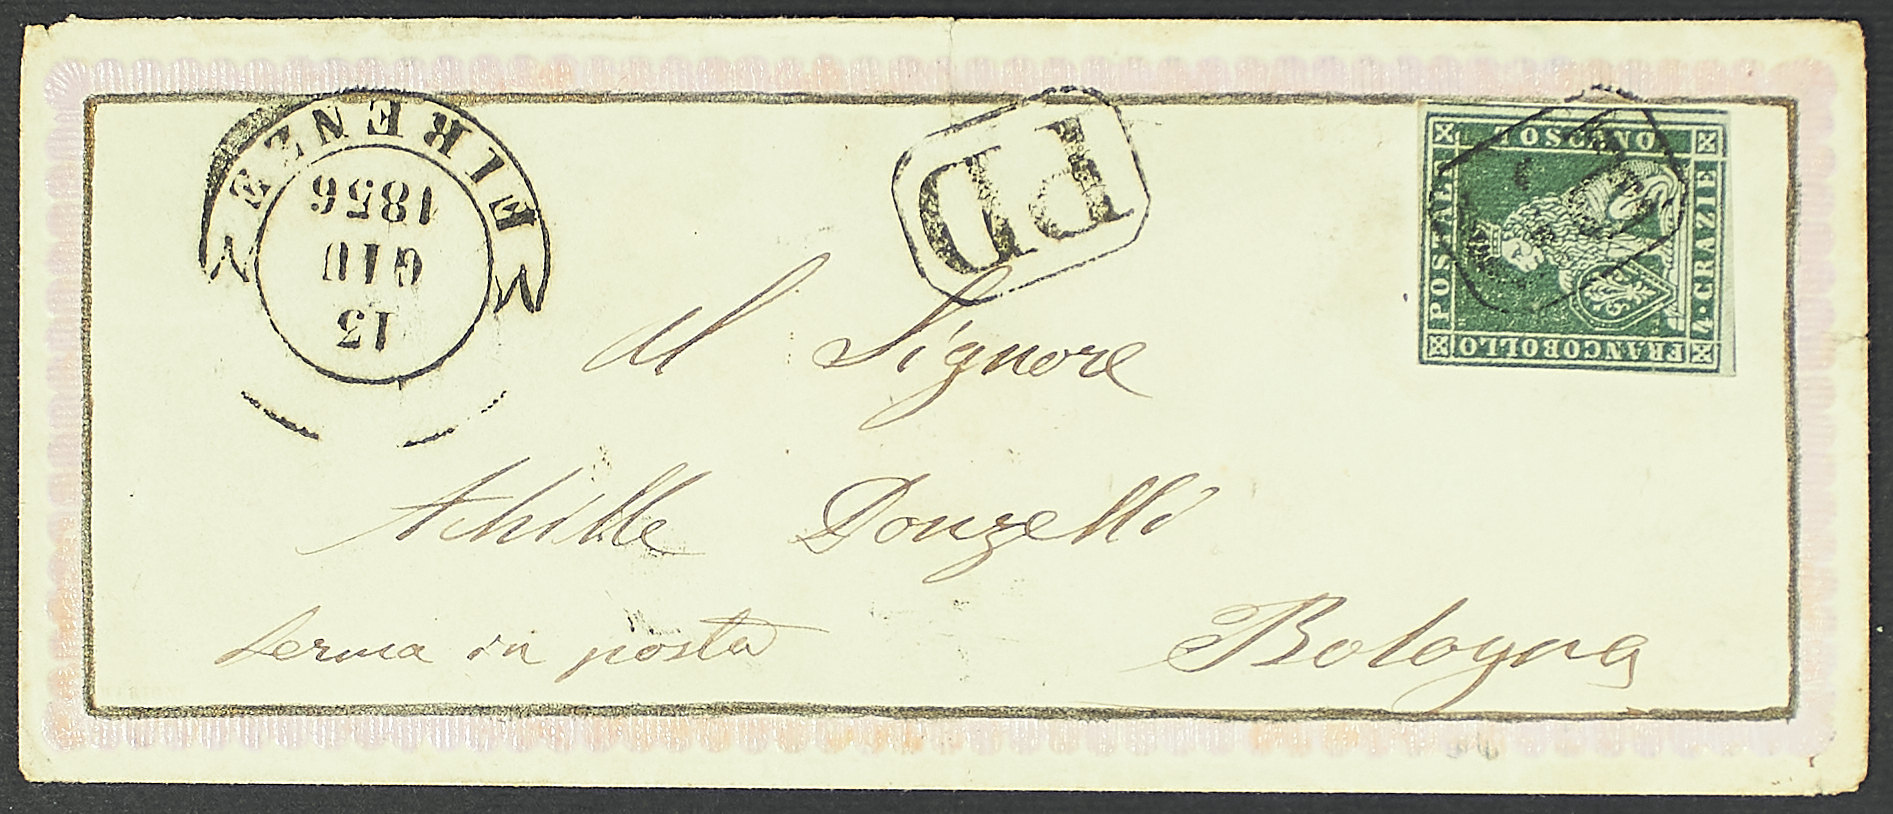 FIRENZE
1856
GIU
13
PD
FRANCOBOLLO POSTALE TOSCANO
4·GRAZIE
Al Signore
Achille Donzelli
ferma in posta Bologna